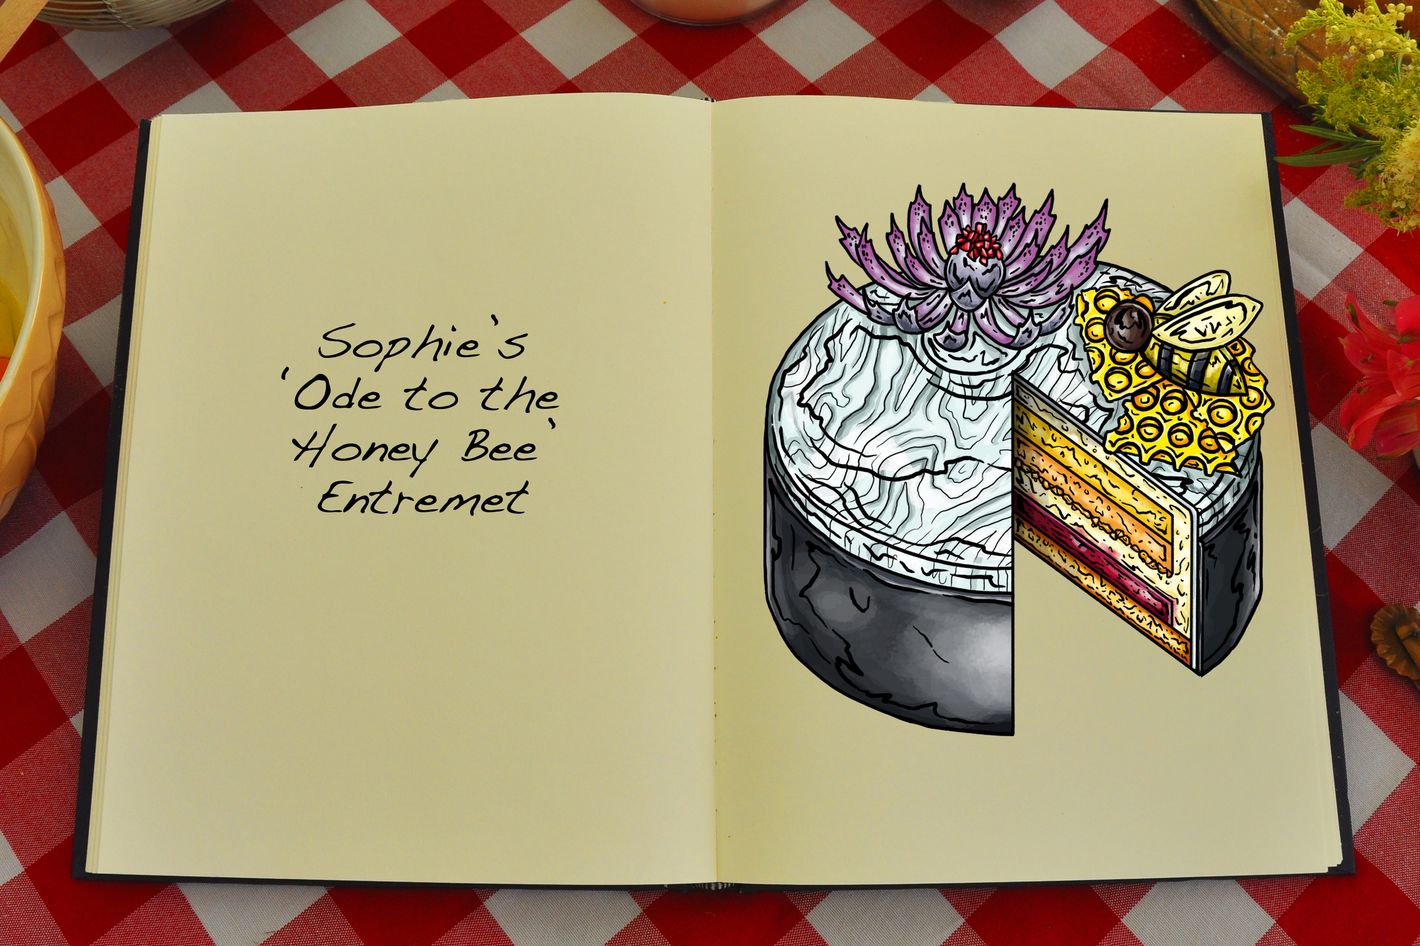 Sophie's
'Ode to the
Honey Bee'
Entremet